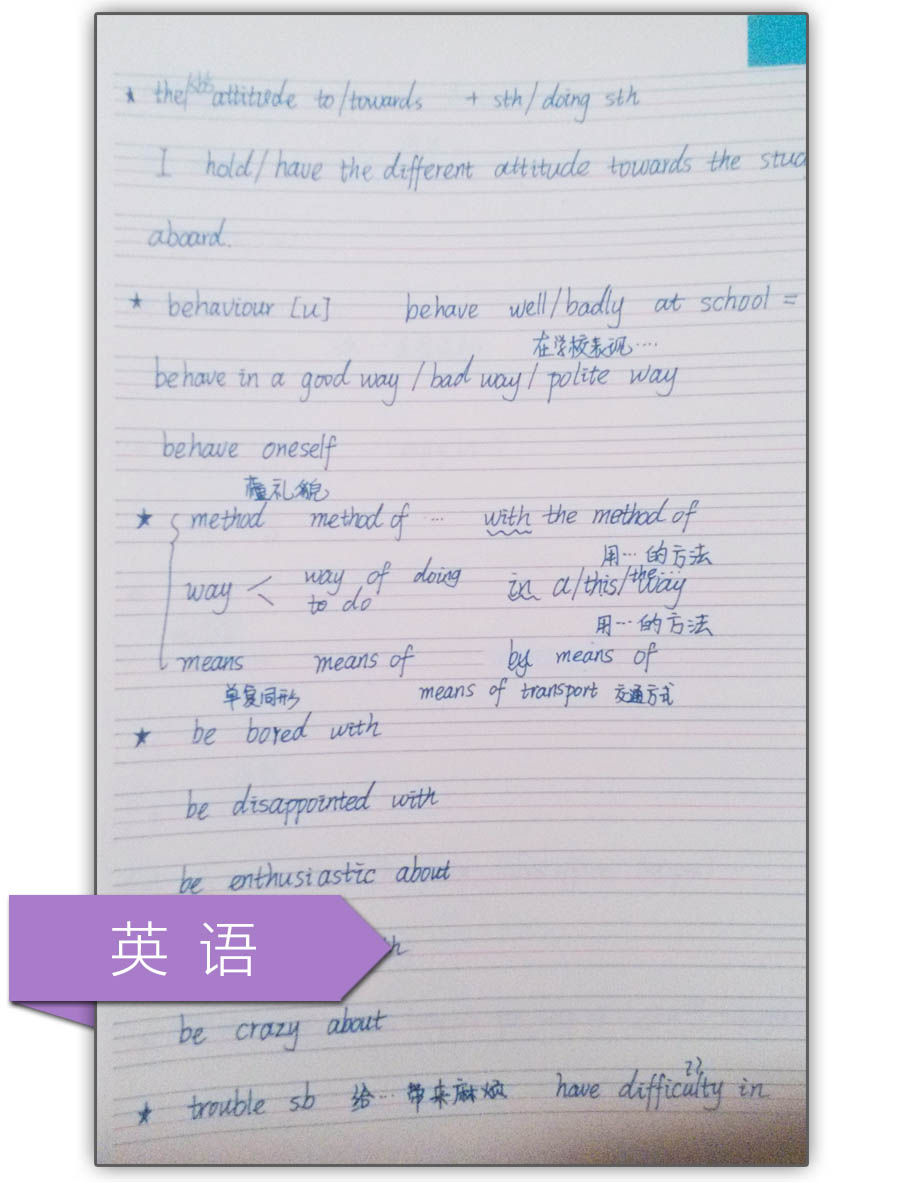 ★ the/sb's attitude to/towards + sth/doing sth
I hold/have the different attitude towards the
aboard.
★ behaviour [u] behave well/badly at school =
在学校表现····
behave in a good way/bad way/polite way
behave oneself
有礼貌
★ method method of ··· with the method of
用···的方法
way < way of doing in a/this/the··· way
to do
用···的方法
means means of by means of
单复同形 means of transport 交通方式
★ be bored with
be disappointed with
be enthusiastic about
英语
be crazy about
★ trouble sb 给···带来麻烦 have difficulty in